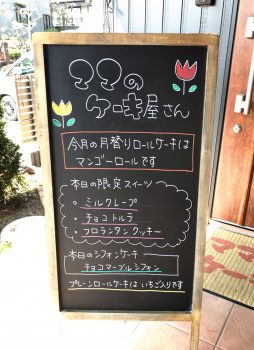 ママの
ケーキ屋さん
今月の月替りロールケーキは
マンゴーロールです
本日の限定スイーツ
。ミルクレープ
。チョコトルテ
。フロランタンクッキー
本日のシフォンケーキ
チョコマーブルシフォン
プレーンロールケーキは いちご入りです